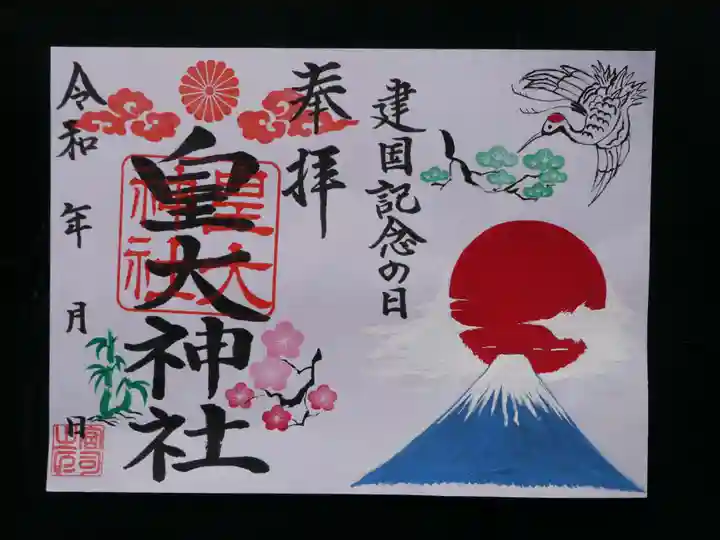 建国記念の日
奉拝
皇大神社
皇大神社
令和 年 月 日
宮司之印